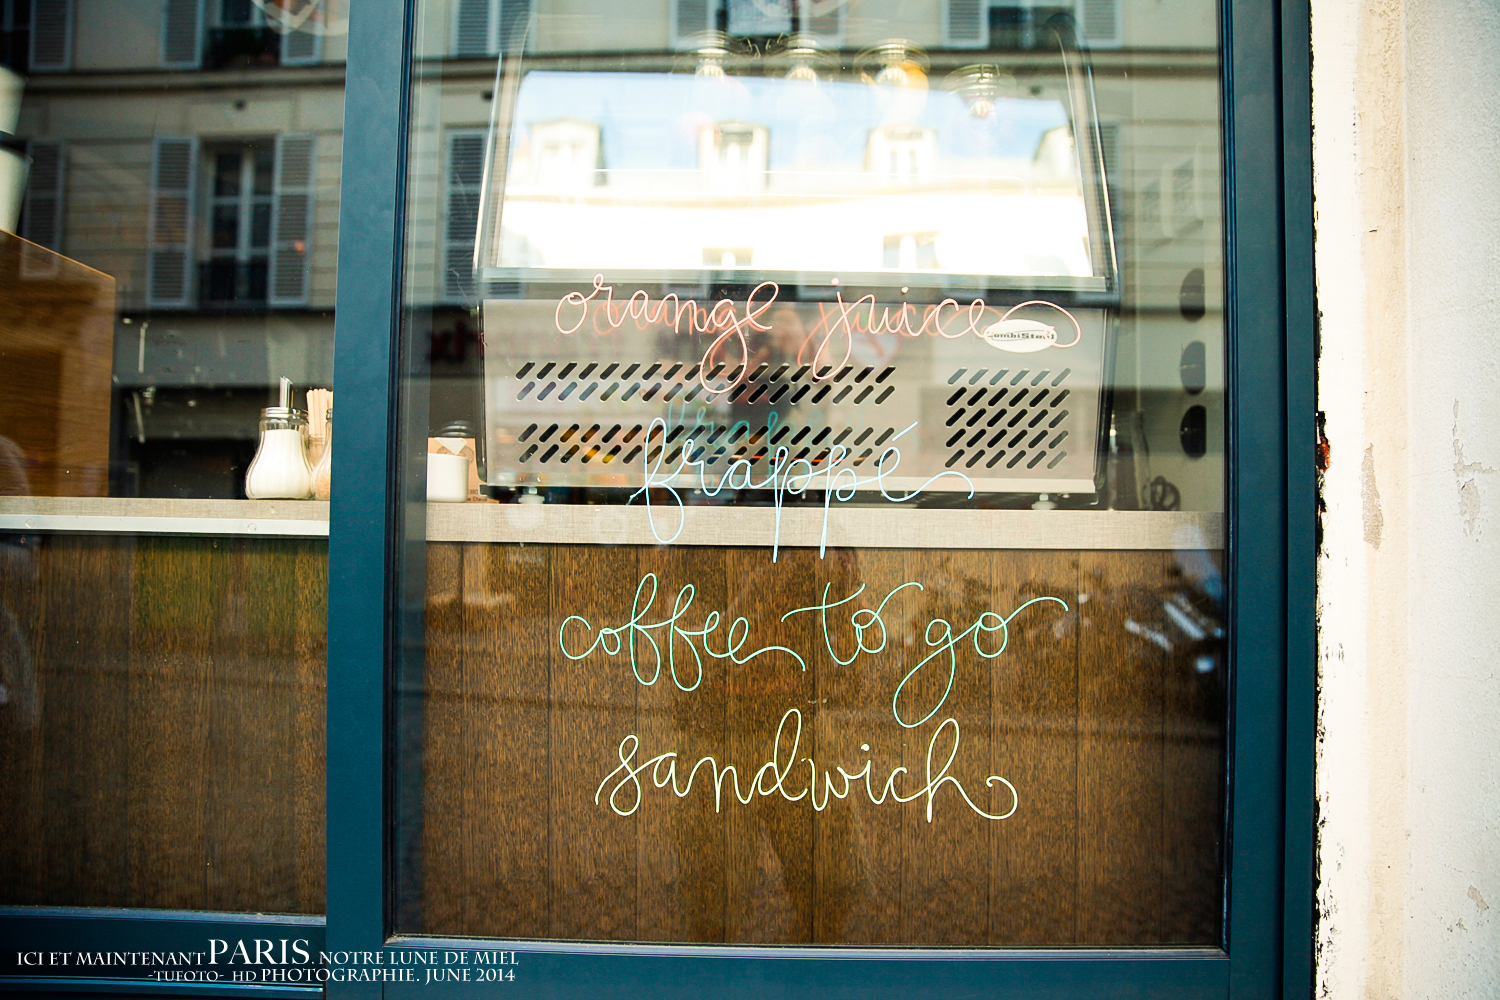 orange juice
frappé
coffee to go
sandwich
ICI ET MAINTENANT PARIS. NOTRE LUNE DE MIEL
-TUFOTO- HD PHOTOGRAPHIE. JUNE 2014